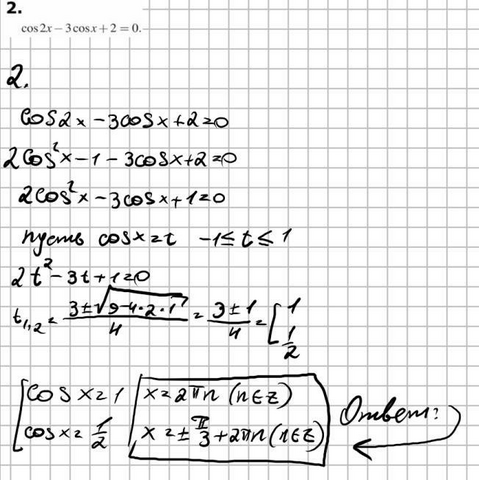 2.
cos2x – 3cosx + 2 = 0.
2.
cos2x - 3cosx + 2 = 0
2cos²x - 1 - 3cosx + 2 = 0
2cos²x - 3cosx + 1 = 0
пусть cosx = t -1 ≤ t ≤ 1
2t² - 3t + 1 = 0
t₁,₂ = (3±√(9-4·2·1))/4 = (3±1)/4 = [1 1/2
[cosx = 1 x = 2πn (n∈Z)
cosx = 1/2 x = ± π/3 + 2πn (n∈Z)
Ответ: